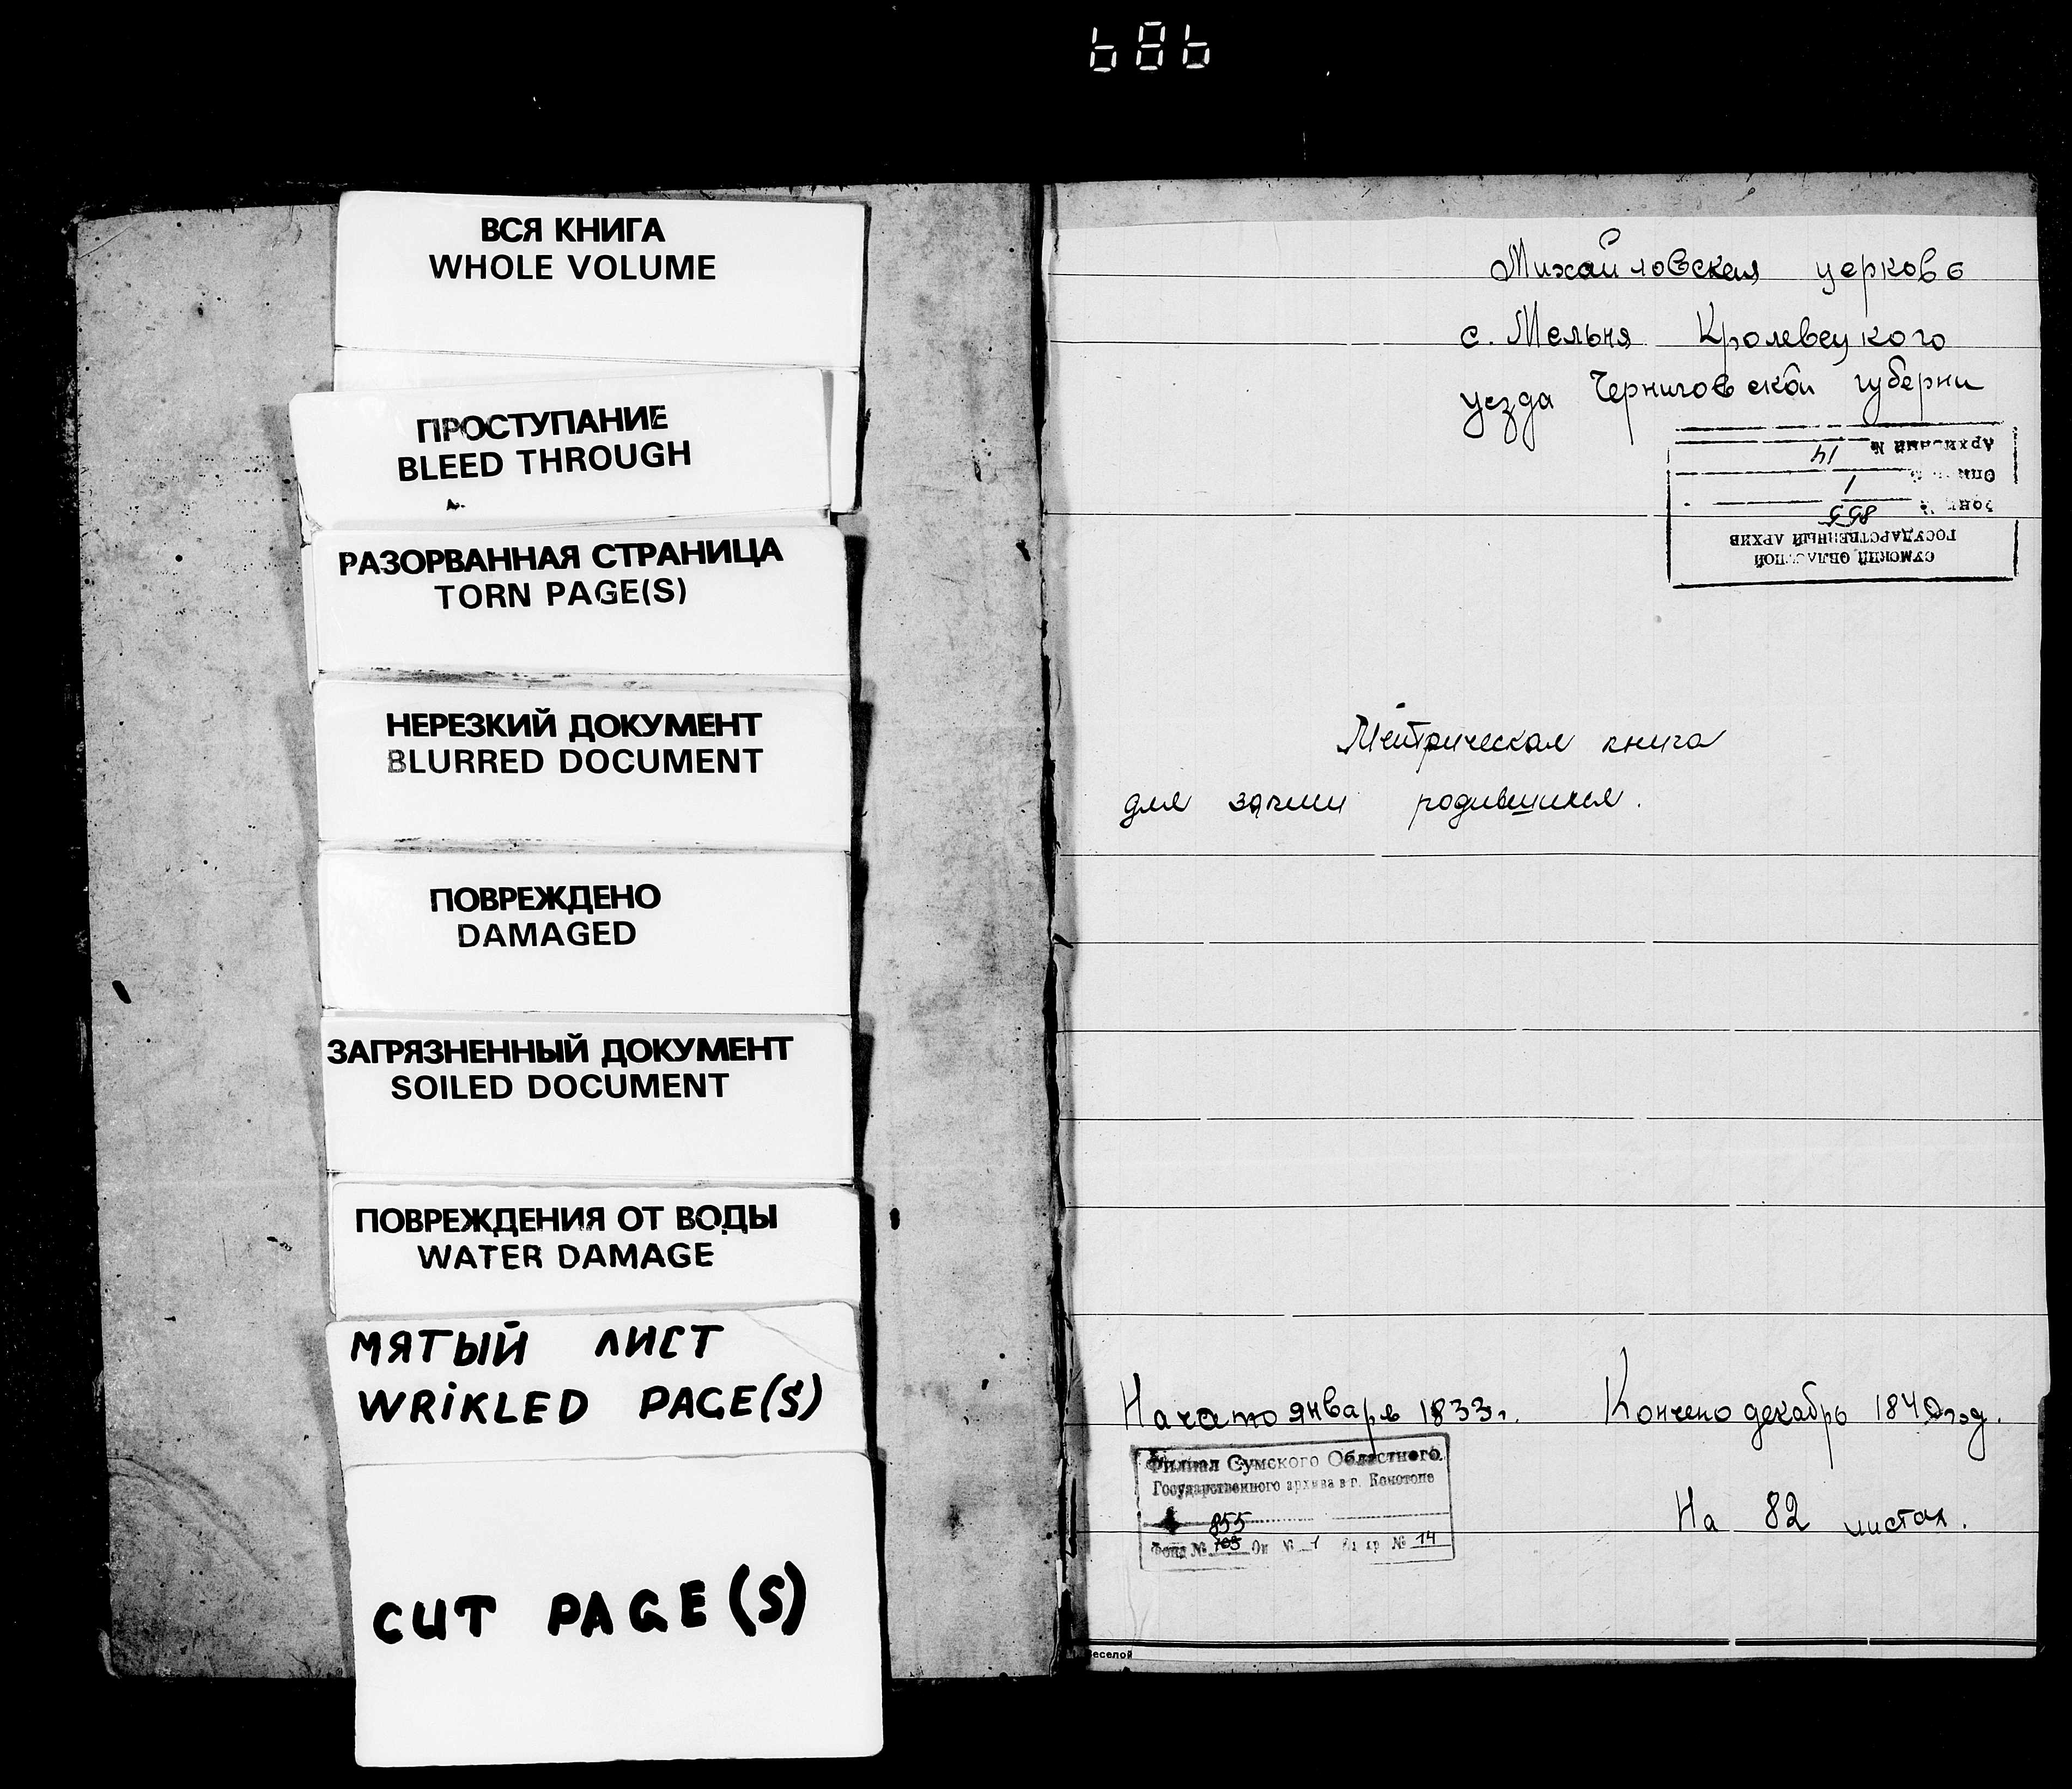 ВСЯ КНИГА
WHOLE VOLUME
ПРОСТУПАНИЕ
BLEED THROUGH
РАЗОРВАННАЯ СТРАНИЦА
TORN PAGE(S)
НЕРЕЗКИЙ ДОКУМЕНТ
BLURRED DOCUMENT
ПОВРЕЖДЕНО
DAMAGED
ЗАГРЯЗНЕННЫЙ ДОКУМЕНТ
SOILED DOCUMENT
ПОВРЕЖДЕНИЯ ОТ ВОДЫ
WATER DAMAGE
МЯТЫЙ ЛИСТ
WRIKLED PAGE(S)
CUT PAGE(S)
Михайловская церковь
с. Мельня Кролевецкого
уезда Черниговской губерни
СУМСКИЙ ОБЛАСТНОЙ
ГОСУДАРСТВЕННЫЙ АРХИВ
855
1
14
Метрическая книга
для родившихся.
Начато январь 1833г. Кончено декабрь 1840год.
Филиал Сумского Областного
Государственного архива в г. Конотопе
855
Фонд № 703 Оп № 1 № 14
На 82 листах.